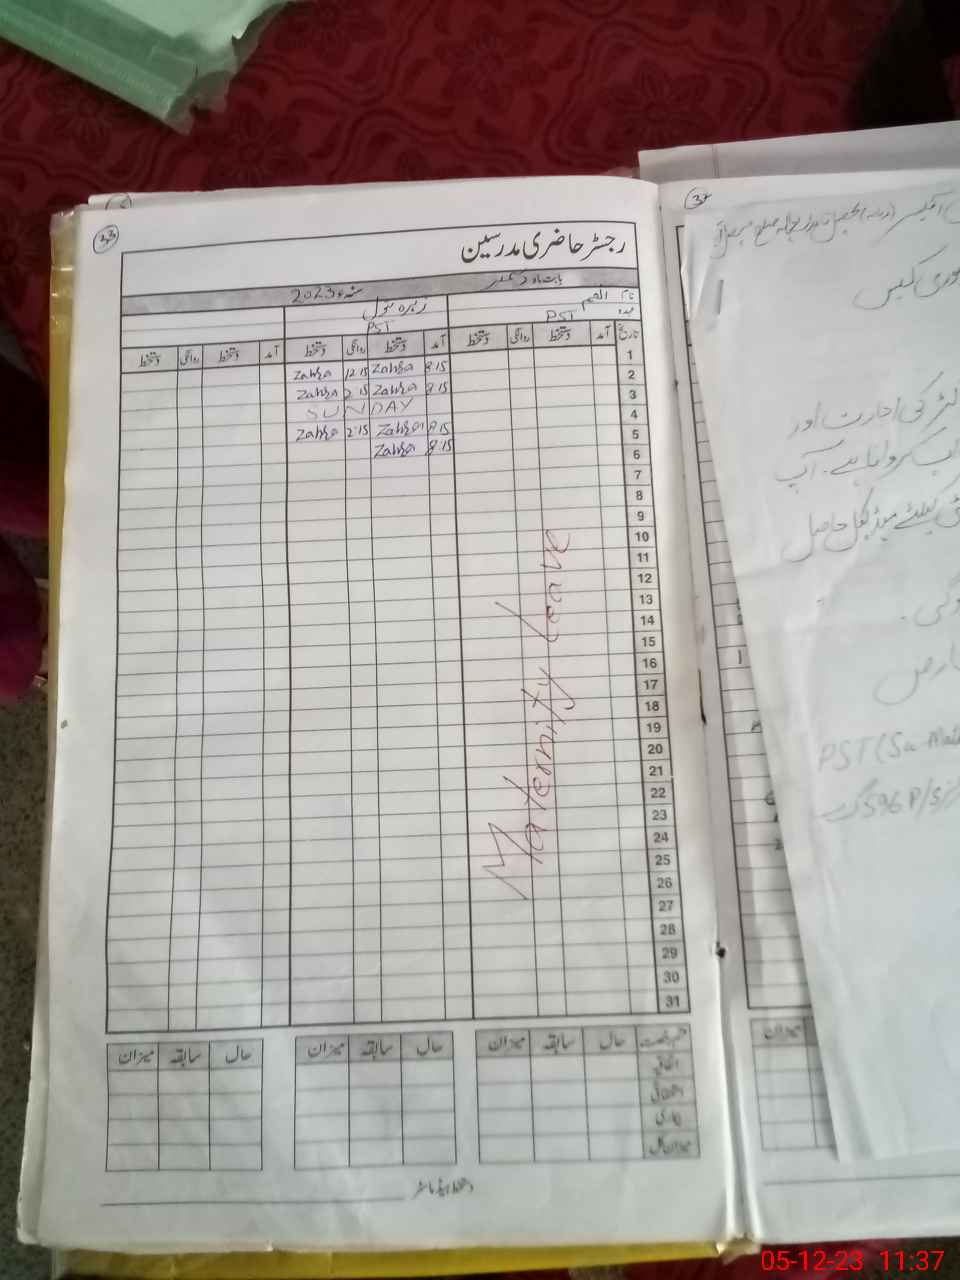 33
رجسٹر حاضری مدرسین
بابت ماہ دسمبر سنہء 2023
نام انعم زہرہ بتول
عہدہ PST PST
تاریخ آمد دستخط روانگی دستخط آمد دستخط روانگی دستخط آمد دستخط روانگی دستخط
1 8:15 Zahra 12:15 Zahra
2 8:15 Zahra 2:15 Zahra
3 SUNDAY
4 8:15 Zahra 2:15 Zahra
5 8:15 Zahra
6
7
8
9
10
11
12
13
14
15
16
17
18
19
20
21
22
23
24
25
26
27
28
29
30
31
Maternity Leave
قسم رخصت حال سابقہ میزان حال سابقہ میزان حال سابقہ میزان
اتفاقیہ
استحقاقی
بیماری
میزان کل
دستخط ہیڈ ماسٹر
کی اجازت اور
کروانا ہے۔ آپ
کیلئے میڈیکل حاصل
PST
596 P/S
میزان
05-12-23 11:37